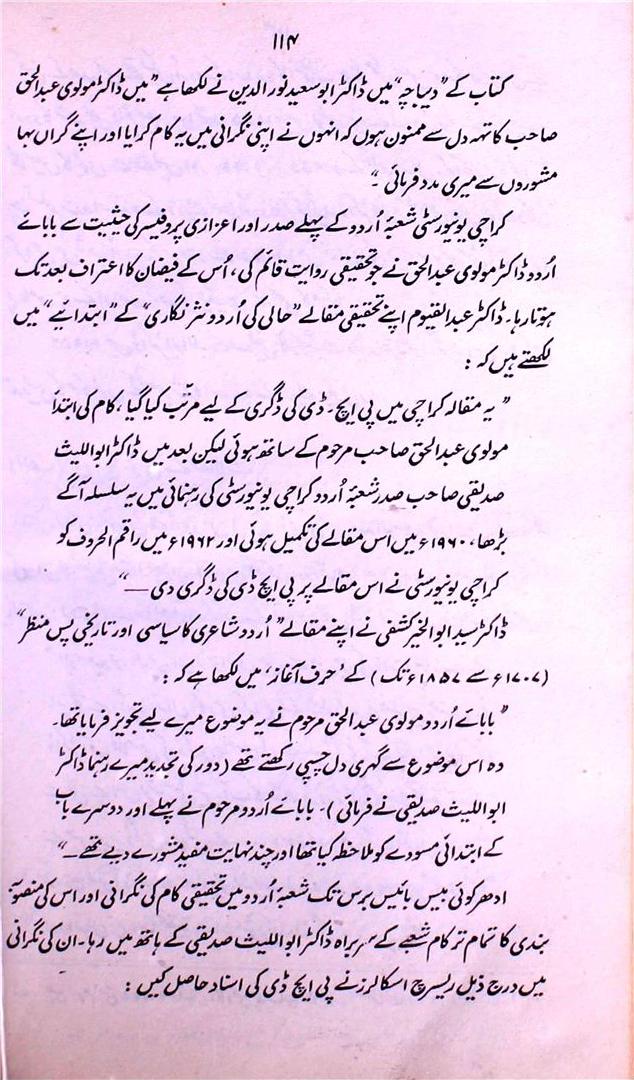 ۱۱۴
کتاب کے ”دیباچہ“ میں ڈاکٹر ابو سعید نور الدین نے لکھا ہے ”میں ڈاکٹر مولوی عبدالحق
صاحب کا تہہ دل سے ممنون ہوں کہ انہوں نے اپنی نگرانی میں یہ کام کرایا اور اپنے گراں بہا
مشوروں سے میری مدد فرمائی۔“
کراچی یونیورسٹی شعبۂ اُردو کے پہلے صدر اور اعزازی پروفیسر کی حیثیت سے بابائے
اُردو ڈاکٹر مولوی عبدالحق نے جو تحقیقی روایت قائم کی، اُس کے فیضان کا اعتراف بعد تک
ہوتا رہا۔ ڈاکٹر عبدالقیوم اپنے تحقیقی مقالے ”حالی کی اُردو نثر نگاری“ کے ”ابتدائیے“ میں
لکھتے ہیں کہ :
”یہ مقالہ کراچی میں پی ایچ۔ ڈی کی ڈگری کے لیے مرتّب کیا گیا، کام کی ابتدا
مولوی عبدالحق صاحب مرحوم کے ساتھ ہوئی لیکن بعد میں ڈاکٹر ابواللیث
صدیقی صاحب صدر شعبۂ اُردو کراچی یونیورسٹی کی رہنمائی میں یہ سلسلہ آگے
بڑھا، ۱۹۶۰ء میں اس مقالے کی تکمیل ہوئی اور ۱۹۶۲ء میں راقم الحروف کو
کراچی یونیورسٹی نے اس مقالے پر پی ایچ ڈی کی ڈگری دی —“
ڈاکٹر سید ابوالخیر کشفی نے اپنے مقالے ”اُردو شاعری کا سیاسی اور تاریخی پس منظر“
(۱۷۰۷ء سے ۱۸۵۷ء تک) کے ’حرف آغاز‘ میں لکھا ہے کہ :
”بابائے اُردو مولوی عبدالحق مرحوم نے یہ موضوع میرے لیے تجویز فرمایا تھا۔
وہ اس موضوع سے گہری دل چسپی رکھتے تھے (دور کی تجدید میرے رہنما ڈاکٹر
ابواللیث صدیقی نے فرمائی)۔ بابائے اُردو مرحوم نے پہلے اور دوسرے باب
کے ابتدائی مسودے کو ملاحظہ کیا تھا اور چند نہایت مفید مشورے دیے تھے —“
ادھر کوئی بیس بائیس برس تک شعبۂ اُردو میں تحقیقی کام کی نگرانی اور اس کی منصوبہ
بندی کا تمام تر کام شعبے کے سربراہ ڈاکٹر ابواللیث صدیقی کے ہاتھ میں رہا۔ ان کی نگرانی
میں درج ذیل ریسرچ اسکالرز نے پی ایچ ڈی کی اسناد حاصل کیں :